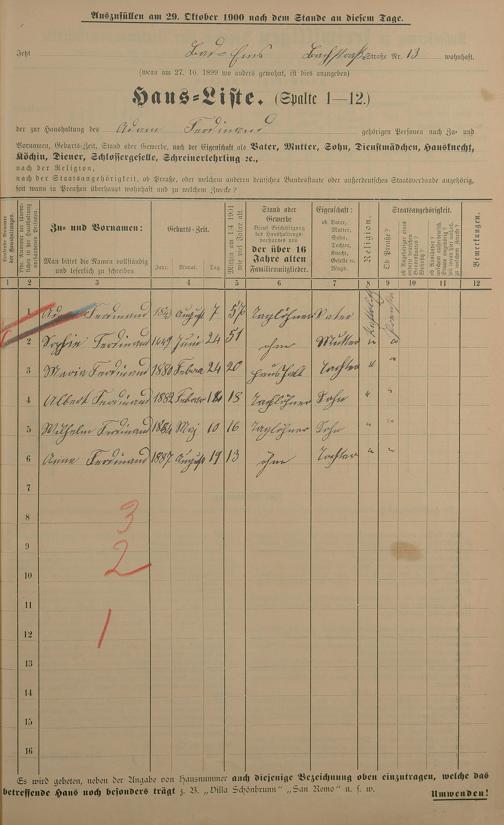 Auszufüllen am 29. Oktober 1900 nach dem Stande an diesem Tage.
Jetzt Bad-Ems Bachstraße Straße Nr. 13 wohnhaft.
(wenn am 27. 10. 1899 wo anders gewohnt, ist dies anzugeben)
Haus-Liste. (Spalte 1—12.)
der zur Haushaltung des Adam Ferdinand gehörigen Personen nach Zu- und
Vornamen, Geburts-Zeit, Stand oder Gewerbe, nach der Eigenschaft als Vater, Mutter, Sohn, Dienstmädchen, Hausknecht,
Köchin, Diener, Schlossergeselle, Schreinerlehrling ꝛc.,
nach der Religion,
nach der Staatsangehörigkeit, ob Preuße, oder welchem anderen deutschen Bundesstaate oder außerdeutschen Staatsverbande angehörig,
seit wann in Preußen überhaupt wohnhaft und zu welchem Zwecke?
Zu- und Vornamen:
Man bittet die Namen vollständig und leserlich zu schreiben.
Geburts-Zeit.
Jahr. Monat. Tag.
Mithin am 1/4 1901 wie viel Jahre alt.
Stand oder Gewerbe
der über 16 Jahre alten Familienmitglieder.
Eigenschaft:
ob Vater, Mutter, Sohn, Tochter, Knecht, Geselle u. Magd.
Religion.
Staatsangehörigkeit.
Ob Preuße?
Bemerkungen.
1 2 3 4 5 6 7 8 9 10 11 12
1 Adam Ferdinand August 7 57 Taglöhner Vater
2 Sophie Ferdinand 1849 Juni 24 51 ohne Mutter "
3 Maria Ferdinand 1880 Februar 24 20 Haushalt Tochter "
4 Albert Ferdinand 1882 Februar 18 Taglöhner Sohn "
5 Wilhelm Ferdinand 1884 Mai 10 16 Taglöhner Sohn "
6 Anna Ferdinand 1887 August 19 13 ohne Tochter "
7
8 3
9 2
10
11
12 1
13
14
15
16
Es wird gebeten, neben der Angabe von Hausnummer auch diejenige Bezeichnung oben einzutragen, welche das
betreffende Haus noch besonders trägt z. B. „Villa Schönbrunn" „San Remo" u. s. w. Umwenden!